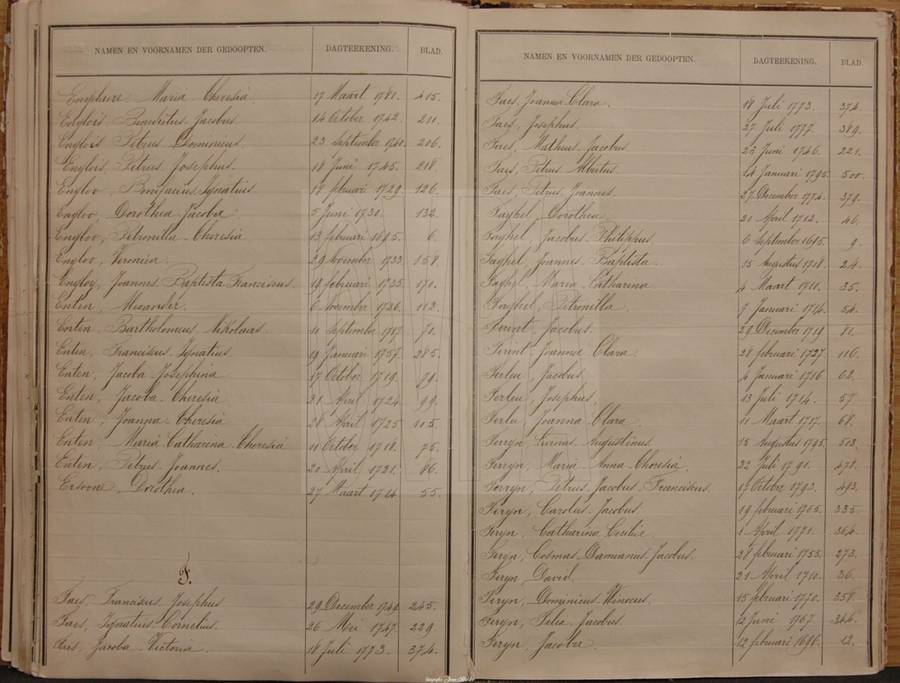 NAMEN EN VOORNAMEN DER GEDOOPTEN. DAGTEEKENING. BLAD.
Maria Theresia 17 Maart 1781. 415.
Englois Benedictus Jacobus 14 October 1742. 211.
Englois Petrus Dominicus 23 September 1740. 206.
Englois Petrus Josephus 18 Juni 1745. 218.
Engloo, Bonifacius Ignatius 17 februari 1729 126.
Engloo, Dorothea Jacoba 5 Juni 1730. 132.
Engloo, Petronilla Theresia 13 februari 1695. 6.
Engloo, Veronica 29 November 1733 158.
Engloy, Joannes Baptista Franciscus 19 februari 1735 170.
Enten, Alexander 6 November 1726. 112.
Enten, Bartholomeus Nikolaas 11 September 1717 71.
Enten, Franciscus Ignatius 19 Januari 1757. 285.
Enten, Jacoba Josephina 17 October 1719. 79.
Enten, Jacoba Theresia 21 April 1724 99.
Enten, Joanna Theresia 28 April 1725 105.
Enten, Maria Catharina Theresia 11 October 1718. 75.
Enten, Petrus Joannes. 20 April 1721. 86.
Ersoone Dorothea. 27 Maart 1714 55.
F.
Faes, Franciscus Josephus 29 December 1749 245.
Faes, Ignatius Cornelius 26 Mei 1747. 229.
Faes, Jacoba Victoria. 18 Juli 1773. 374.
NAMEN EN VOORNAMEN DER GEDOOPTEN. DAGTEEKENING. BLAD.
Faes, Joanna Clara. 18 Juli 1773. 374.
Faes, Josephus 27 Juli 1777. 389.
Faes, Mathias Jacobus 23 Juni 1746. 221.
Faes, Petrus Albertus 14 Januari 1795. 500.
Faes, Petrus Joannes 27 December 1774. 379.
Faghel Dorothea 20 April 1712. 46.
Faghel, Jacobus Philippus 6 September 1695. 9.
Faghel, Joannes Baptista 15 Augustus 1708. 24.
Faghel, Maria Catharina 4 Maart 1710. 35.
Faghel, Petronilla 7 Januari 1714. 54.
Ferint Jacobus. 29 December 1719. 81.
Ferint, Joanna Clara 28 februari 1727. 116.
Ferleu, Jacobus. 4 Januari 1716 62.
Ferleu, Josephus. 13 juli 1714. 57.
Ferlu Joanna Clara 11 Maart 1717. 68.
Ferryn, Augustinus 15 Augustus 1795. 503.
Ferryn, Maria Anna Theresia. 22 Juli 1791. 478.
Ferryn, Petrus Jacobus Franciscus. 17 October 1793. 493.
Feryn, Carolus Jacobus 19 februari 1765. 335.
Feryn, Catharina Cecilia 1 April 1771. 364.
Feryn, Cosmas Damianus Jacobus. 28 februari 1755. 273.
Feryn, David. 21 April 1710. 36.
Feryn, Dominicus Winocus. 15 februari 1770. 357.
Feryn, Jacobus 12 Juni 1767. 344.
Feryn Jacoba 12 februari 1696. 12.